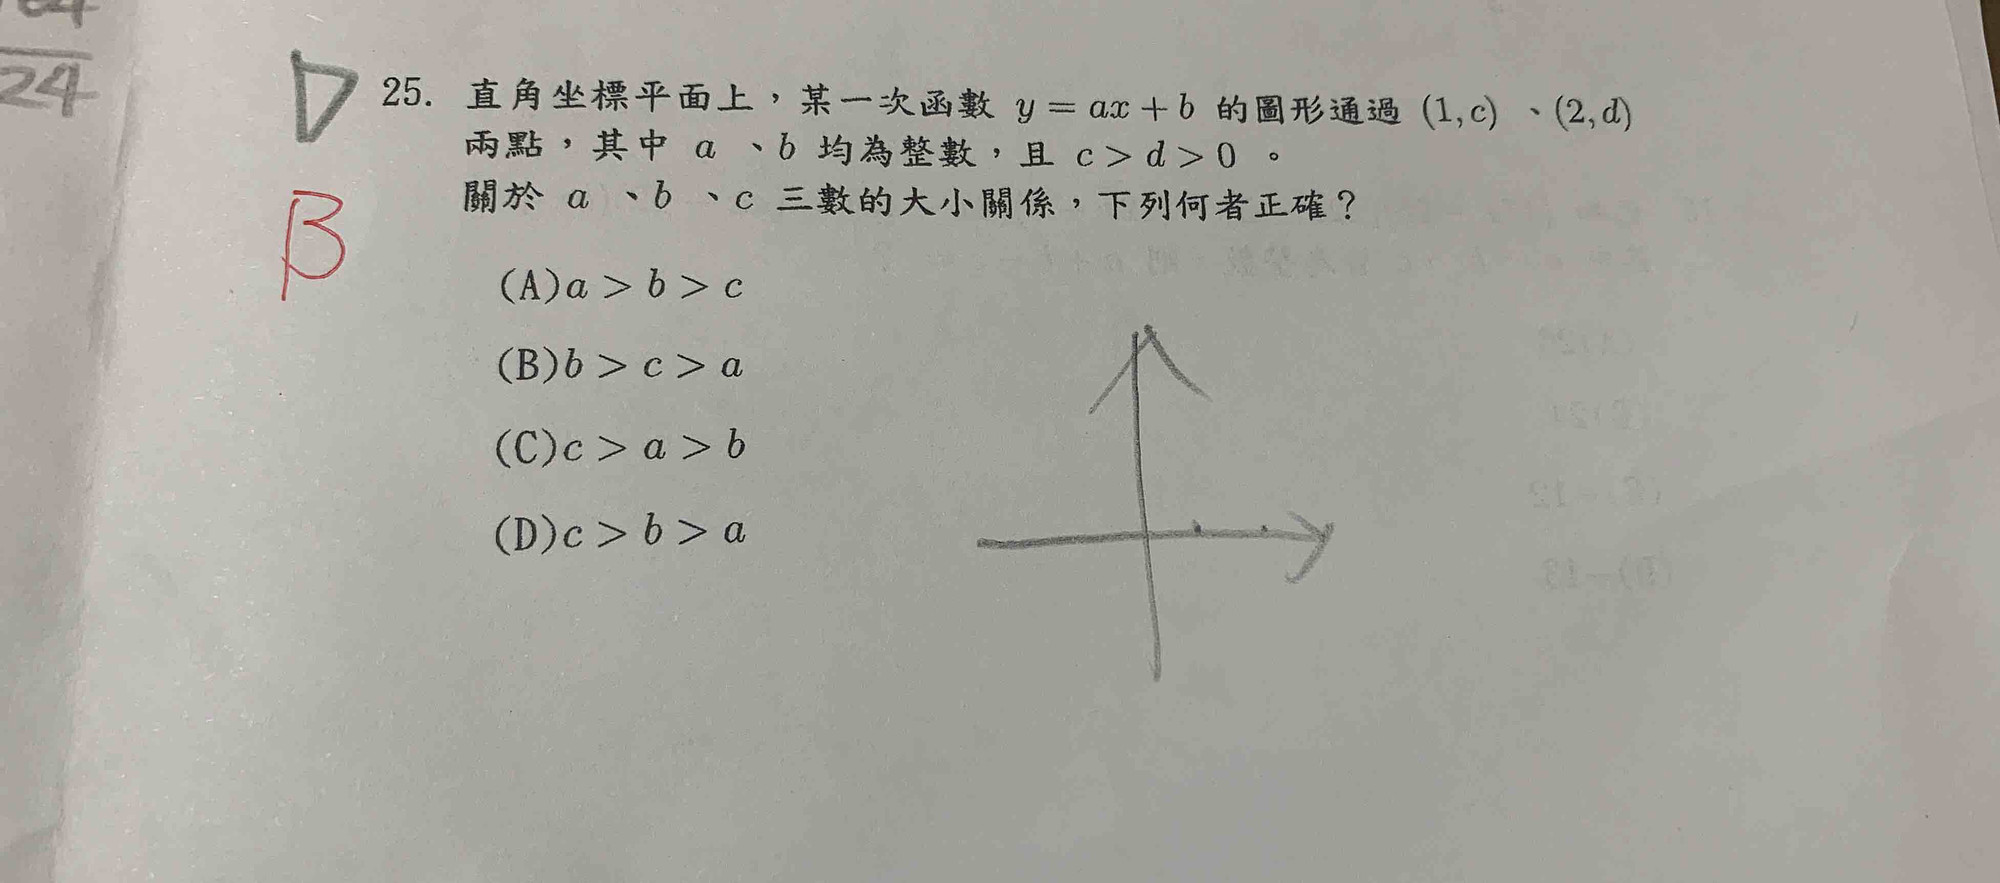 24
D
25. 直角坐標平面上，某一次函數 y = ax + b 的圖形通過 (1, c) 、(2, d)
兩點，其中 a 、b 均為整數，且 c > d > 0 。
關於 a 、b 、c 三數的大小關係，下列何者正確？
B
(A)a > b > c
(B)b > c > a
(C)c > a > b
(D)c > b > a